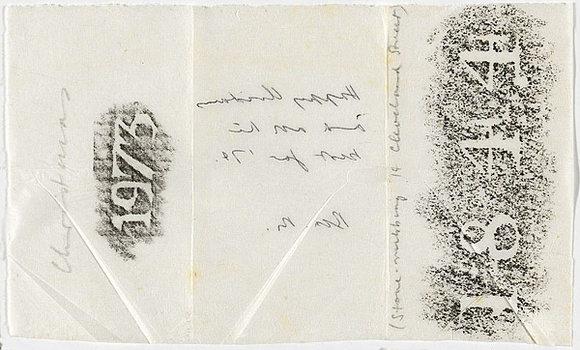 Christmas
1973
Happy Christmas
and all the
best for
(Stone-rubbing 14 Cleveland Street)
18 14